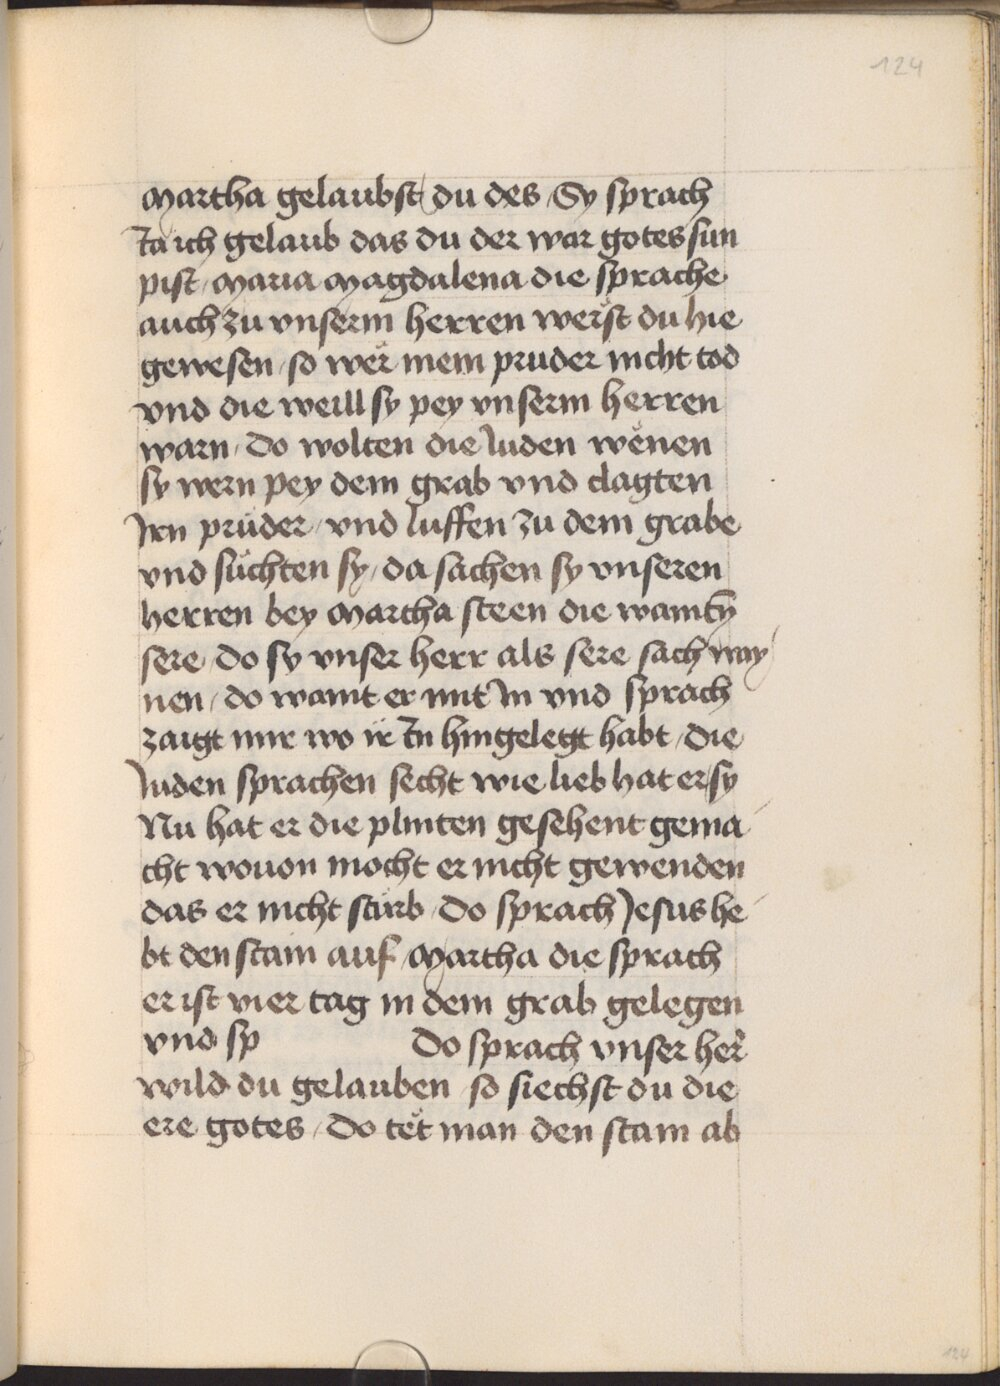 124
Martha gelaubst du des / Sy sprach
Ia ich gelaub das du der war gotes sun
pist / Maria Magdalena die sprache
auch zu vnserm herren werst du hie
gewesen / so wer mein pruder nicht tod
vnd die weill sy pey vnserm herren
warn / Do wolten die Iuden wenen
sy wern pey dem grab vnd clagten
Irn pruder / vnd luffen zu dem grabe
vnd suchten sy / da sachen sy vnseren
herren bey Martha steen die
sere / Do sy vnser herr als sere sach way
nen / do waint er mit In vnd sprach
zaigt mir wo ir In hingelegt habt / die
Iuden sprachen secht wie lieb hat er sy
Nu hat er die plinten gesehent gema
cht wouon mocht er nicht gewenden
das er nicht sturb / Do sprach Jesus he
bt den stain auf / Martha die sprach
er ist vier tag in dem grab gelegen
vnd sp Do sprach vnser her
wild du gelauben so siechst du die
ere gotes / Do tet man den stain ab
124